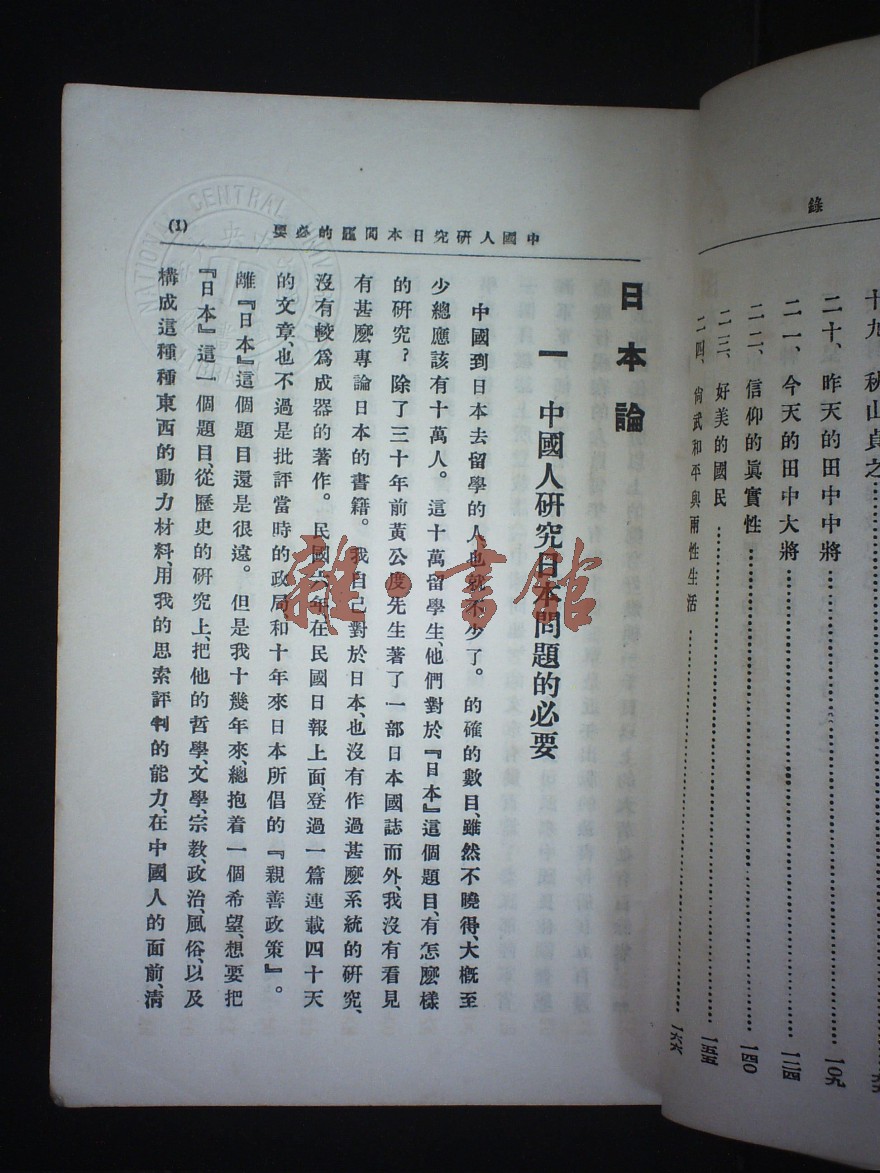 錄
十九、秋山眞之
二十、昨天的田中中將……一〇九
二一、今天的田中大將……一二四
二二、信仰的眞實性……一四〇
二三、好美的國民……一五五
二四、尙武和平與兩性生活……一六六
中國人研究日本問題的必要
(1)
日本論
一 中國人研究日本問題的必要
中國到日本去留學的人也就不少了。的確的數目、雖然不曉得、大槪至
少總應該有十萬人。這十萬留學生、他們對於『日本』這個題目、有怎麼樣
的研究?除了三十年前黃公度先生著了一部日本國誌而外、我沒有看見
有甚麽專論日本的書籍。我自己對於日本、也沒有作過甚麽系統的研究、
沒有較爲成器的著作。民國六年在民國日報上面、登過一篇連載四十天
的文章、也不過是批評當時的政局和十年來日本所倡的『親善政策』。
離『日本』這個題目還是很遠。但是我十幾年來、總抱着一個希望、想要把
『日本』這一個題目、從歷史的研究上、把他的哲學、文學、宗敎、政治、風俗、以及
構成這種種東西的動力材料、用我的思索評判的能力、在中國人的面前、淸
雜·書館
NATIONAL CENTRAL